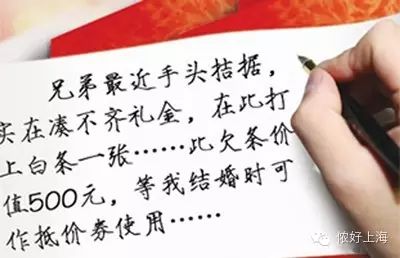 兄弟最近手头拮据，
实在凑不齐礼金，在此打
上白条一张……此欠条价
值500元，等我结婚时可
作抵价券使用……
侬好上海